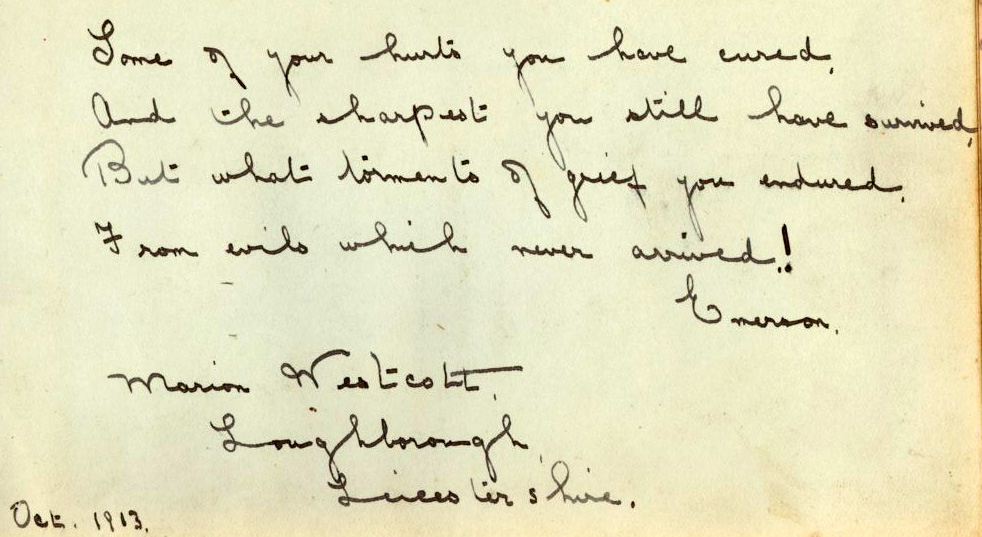 Some of your hurts you have cured,
And the sharpest you still have survived,
But what torments of grief you endured,
From evils which never arrived!
Emerson.
Marion Westcott,
Loughborough,
Leicestershire.
Oct. 1913.